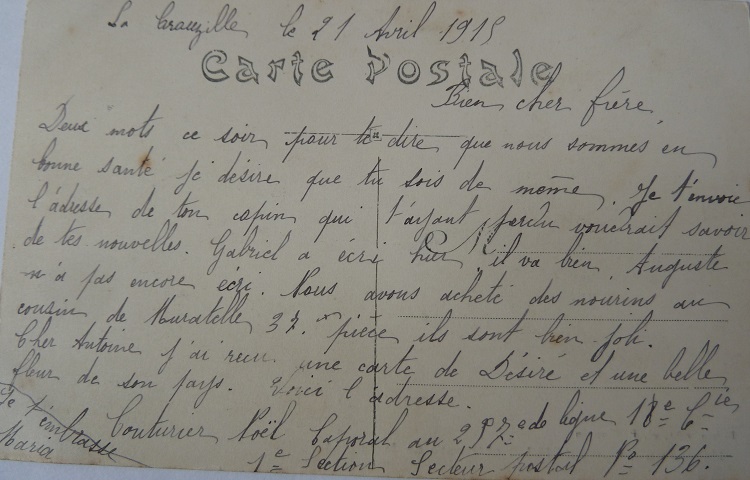 La Crauzille le 21 Avril 1915
Carte Postale
Bien cher frère
Deux mots ce soir pour te dire que nous sommes en
bonne santé je désire que tu sois de même. Je t'envoie
l'adresse de ton copin qui t'ayant perdu voudrait savoir
de tes nouvelles. Gabriel a écri hier, il va bien, Auguste
n'a pas encore écri. Nous avons acheté des nourins au
cousin de Muratelle 37. pièce ils sont bien joli.
Cher Antoine j'ai reçu une carte de Désiré et une belle
fleur de son pays. Voici l'adresse.
Couturier Noël Caporal au 297e de ligne 18e Cie
1e Section Secteur postal No 136.
Je t'embrasse
Maria